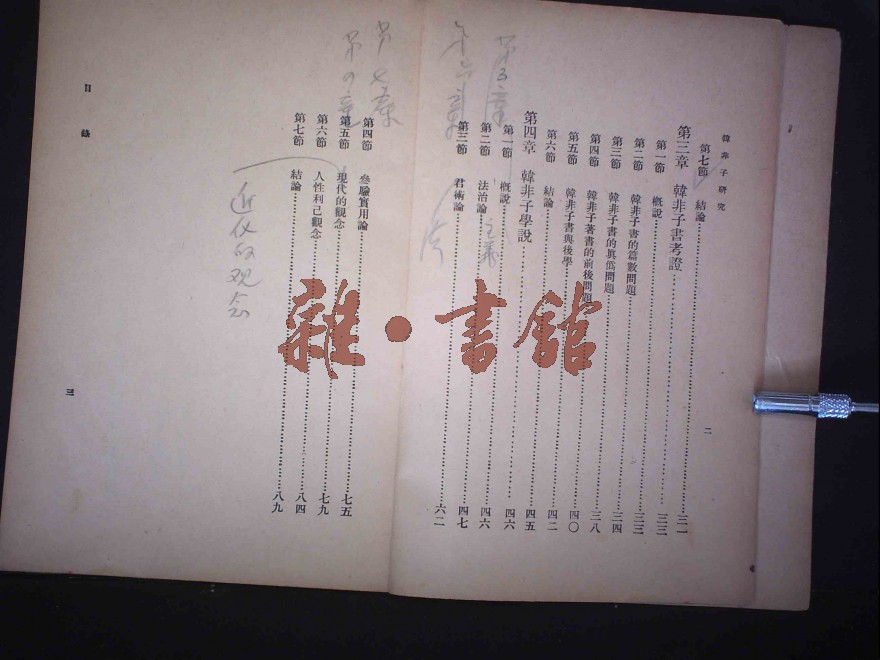 韓非子研究
第七節 結論……三一
第三章 韓非子書考證……三三
第一節 概說……三三
第二節 韓非子書的篇數問題……三四
第三節 韓非子書的眞僞問題……三八
第四節 韓非子著書的前後問題……四〇
第五節 韓非子書與後學……四二
第六節 結論……四五
第四章 韓非子學說……四六
第一節 概說……四六
第二節 法治論……四七
第三節 君術論……六二
二
第六章
主義
第四節 叅驗實用論……七五
第五節 現代的觀念……七九
第六節 人性利己觀念……八四
第七節 結論……八九
第七章
近代的观念
目錄
三
雜·書館